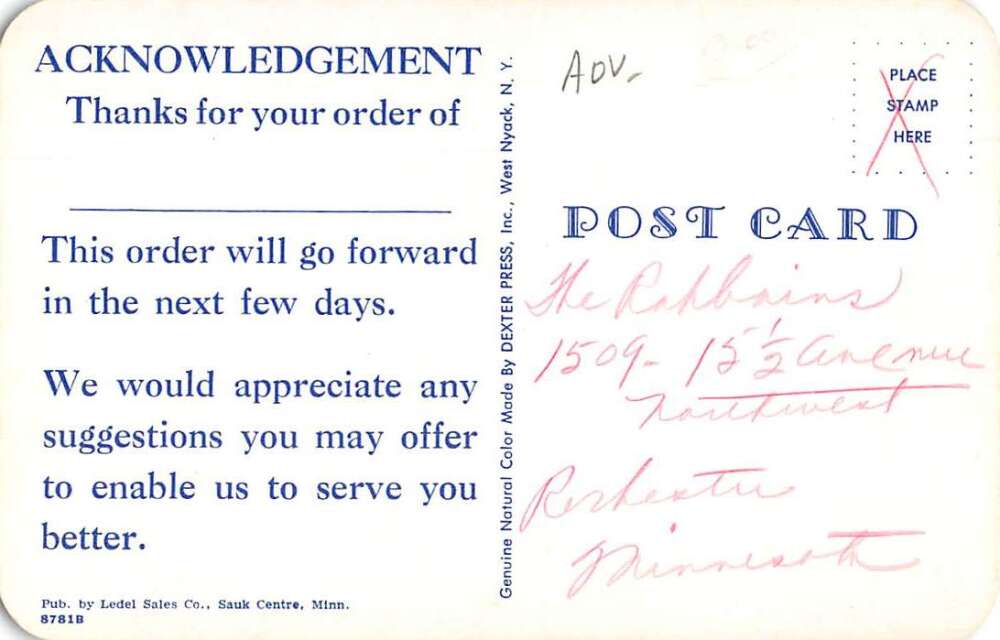 ACKNOWLEDGEMENT
Thanks for your order of
This order will go forward
in the next few days.
We would appreciate any
suggestions you may offer
to enable us to serve you
better.
Pub. by Ledel Sales Co., Sauk Centre, Minn.
8781B
Genuine Natural Color Made By DEXTER PRESS, Inc., West Nyack, N. Y.
ADV.
PLACE
STAMP
HERE
POST CARD
The
1509- 15 1/2 Avenue
Northwest
Rochester
Minnesota